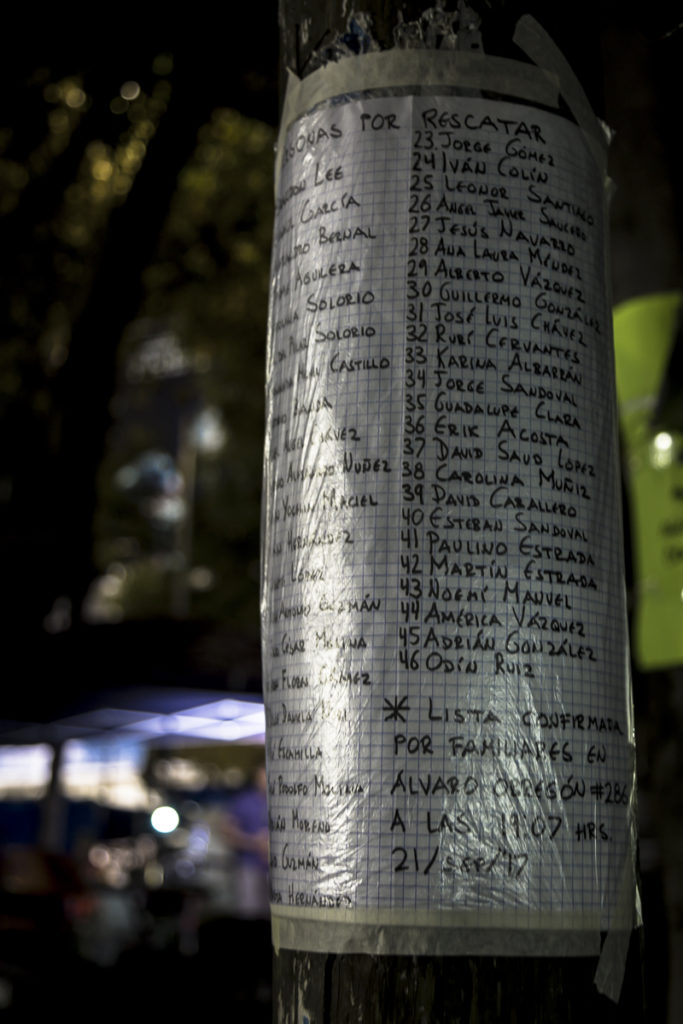 POR RESCATAR
LEE
GARCÍA
BERNAL
AGUILERA
SOLORIO
PILAR SOLORIO
CASTILLO
CHÁVEZ
NUÑEZ
MACIEL
HERNÁNDEZ
LÓPEZ
ANTONIO GUZMÁN
CÉSAR MOLINA
FLORES GÓMEZ
RODOLFO
MORENO
GUZMÁN
HERNÁNDEZ
23 JORGE GÓMEZ
24 IVÁN COLÍN
25 LEONOR SANTIAGO
26 ANGEL JAVIER SAUCEDO
27 JESÚS NAVARRO
28 ANA LAURA MÉNDEZ
29 ALBERTO VÁZQUEZ
30 GUILLERMO GONZÁLEZ
31 JOSÉ LUIS CHÁVEZ
32 RUBÍ CERVANTES
33 KARINA ALBARRÁN
34 JORGE SANDOVAL
35 GUADALUPE CLARA
36 ERIK ACOSTA
37 DAVID SAUD LOPEZ
38 CAROLINA MUÑIZ
39 DAVID CABALLERO
40 ESTEBAN SANDOVAL
41 PAULINO ESTRADA
42 MARTÍN ESTRADA
43 NOEMÍ MANUEL
44 AMÉRICA VÁZQUEZ
45 ADRIÁN GONZÁLEZ
46 ODÍN RUIZ
* LISTA CONFIRMADA
POR FAMILIARES EN
ÁLVARO OBREGÓN #286
A LAS 19:07 HRS.
21/SEP/17